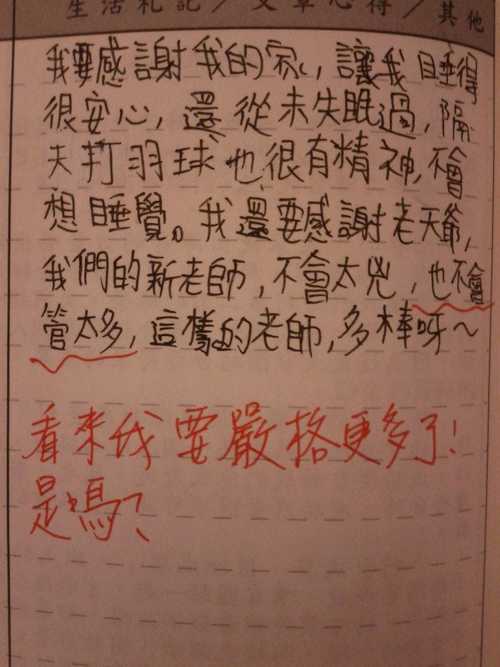 生活札記／文章心得／其他
我要感謝我的家，讓我睡得
很安心，還從未失眠過，隔
天打羽球也很有精神，不會
想睡覺。我還要感謝老天爺，
我們的新老師，不會太兇，也不會
管太多，這樣的老師，多棒呀～
看來我要嚴格更多了！
是嗎？